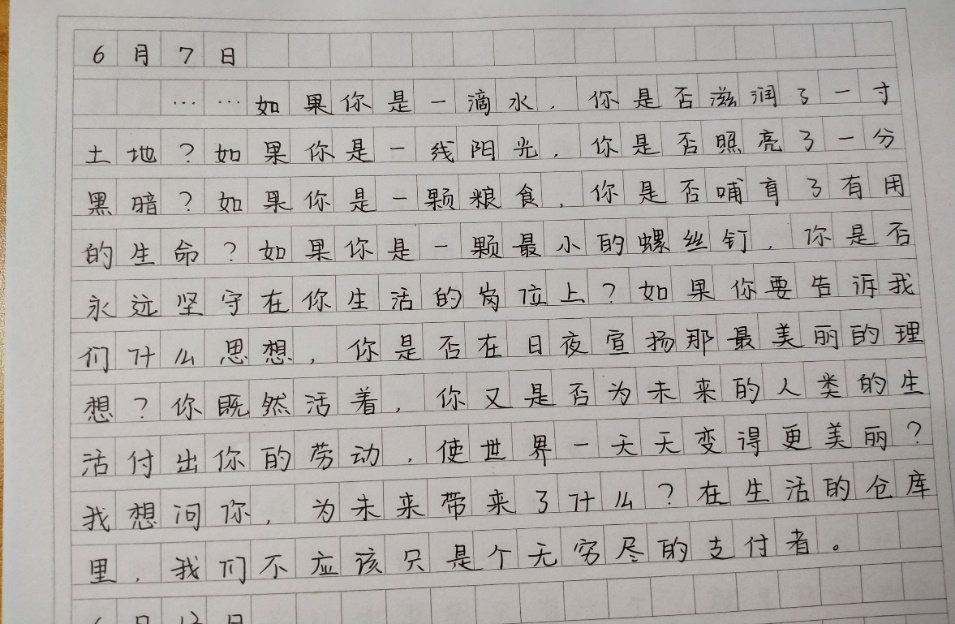 6月7日
……如果你是一滴水,你是否滋润了一寸
土地?如果你是一线阳光,你是否照亮了一分
黑暗?如果你是一颗粮食,你是否哺育了有用
的生命?如果你是一颗最小的螺丝钉,你是否
永远坚守在你生活的岗位上?如果你要告诉我
们什么思想,你是否在日夜宣扬那最美丽的理
想?你既然活着,你又是否为未来的人类的生
活付出你的劳动,使世界一天天变得更美丽?
我想问你,为未来带来了什么?在生活的仓库
里,我们不应该只是个无穷尽的支付者。